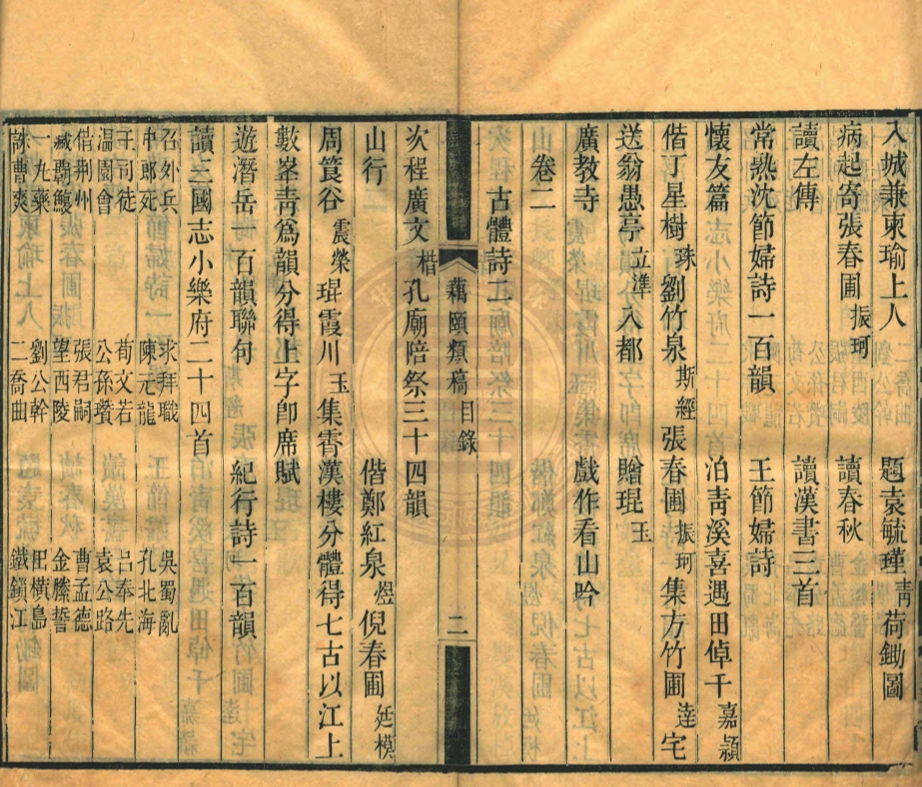 入城兼柬瑜上人　題袁毓瑾靑荷鋤圖
病起寄張春圃振珂　讀春秋
讀左傳　讀漢書三首
常熟沈節婦詩一百韻　王節婦詩
懷友篇　泊靑溪喜遇田倬千嘉穎
偕丁星樹珠劉竹泉斯經張春圃振珂集方竹圃逹宅
送翁愚亭立準入都　贈琨玉
廣教寺　戲作看山吟
卷二
古體詩二
藕頤類稿　目錄　二
次程廣文楷孔廟陪祭三十四韻
山行　偕鄭紅泉煜倪春圃廷模
周筤谷震榮琨霞川玉集霽漢樓分體得七古以江上
數峯靑爲韻分得上字卽席賦
遊潛岳一百韻聯句　紀行詩一百韻
讀三國志小樂府二十四首
召外兵　求拜職　吳蜀亂
中郎死　陳元龍　孔北海
王司徒　荀文若　呂奉先
温園會　公孫瓚　袁公路
借荆州　張君嗣　曹孟德
臧霸鰻　望西陵　金縢誓
一丸藥　劉公幹　田橫島
誅曹爽　二喬曲　鐵鎖江